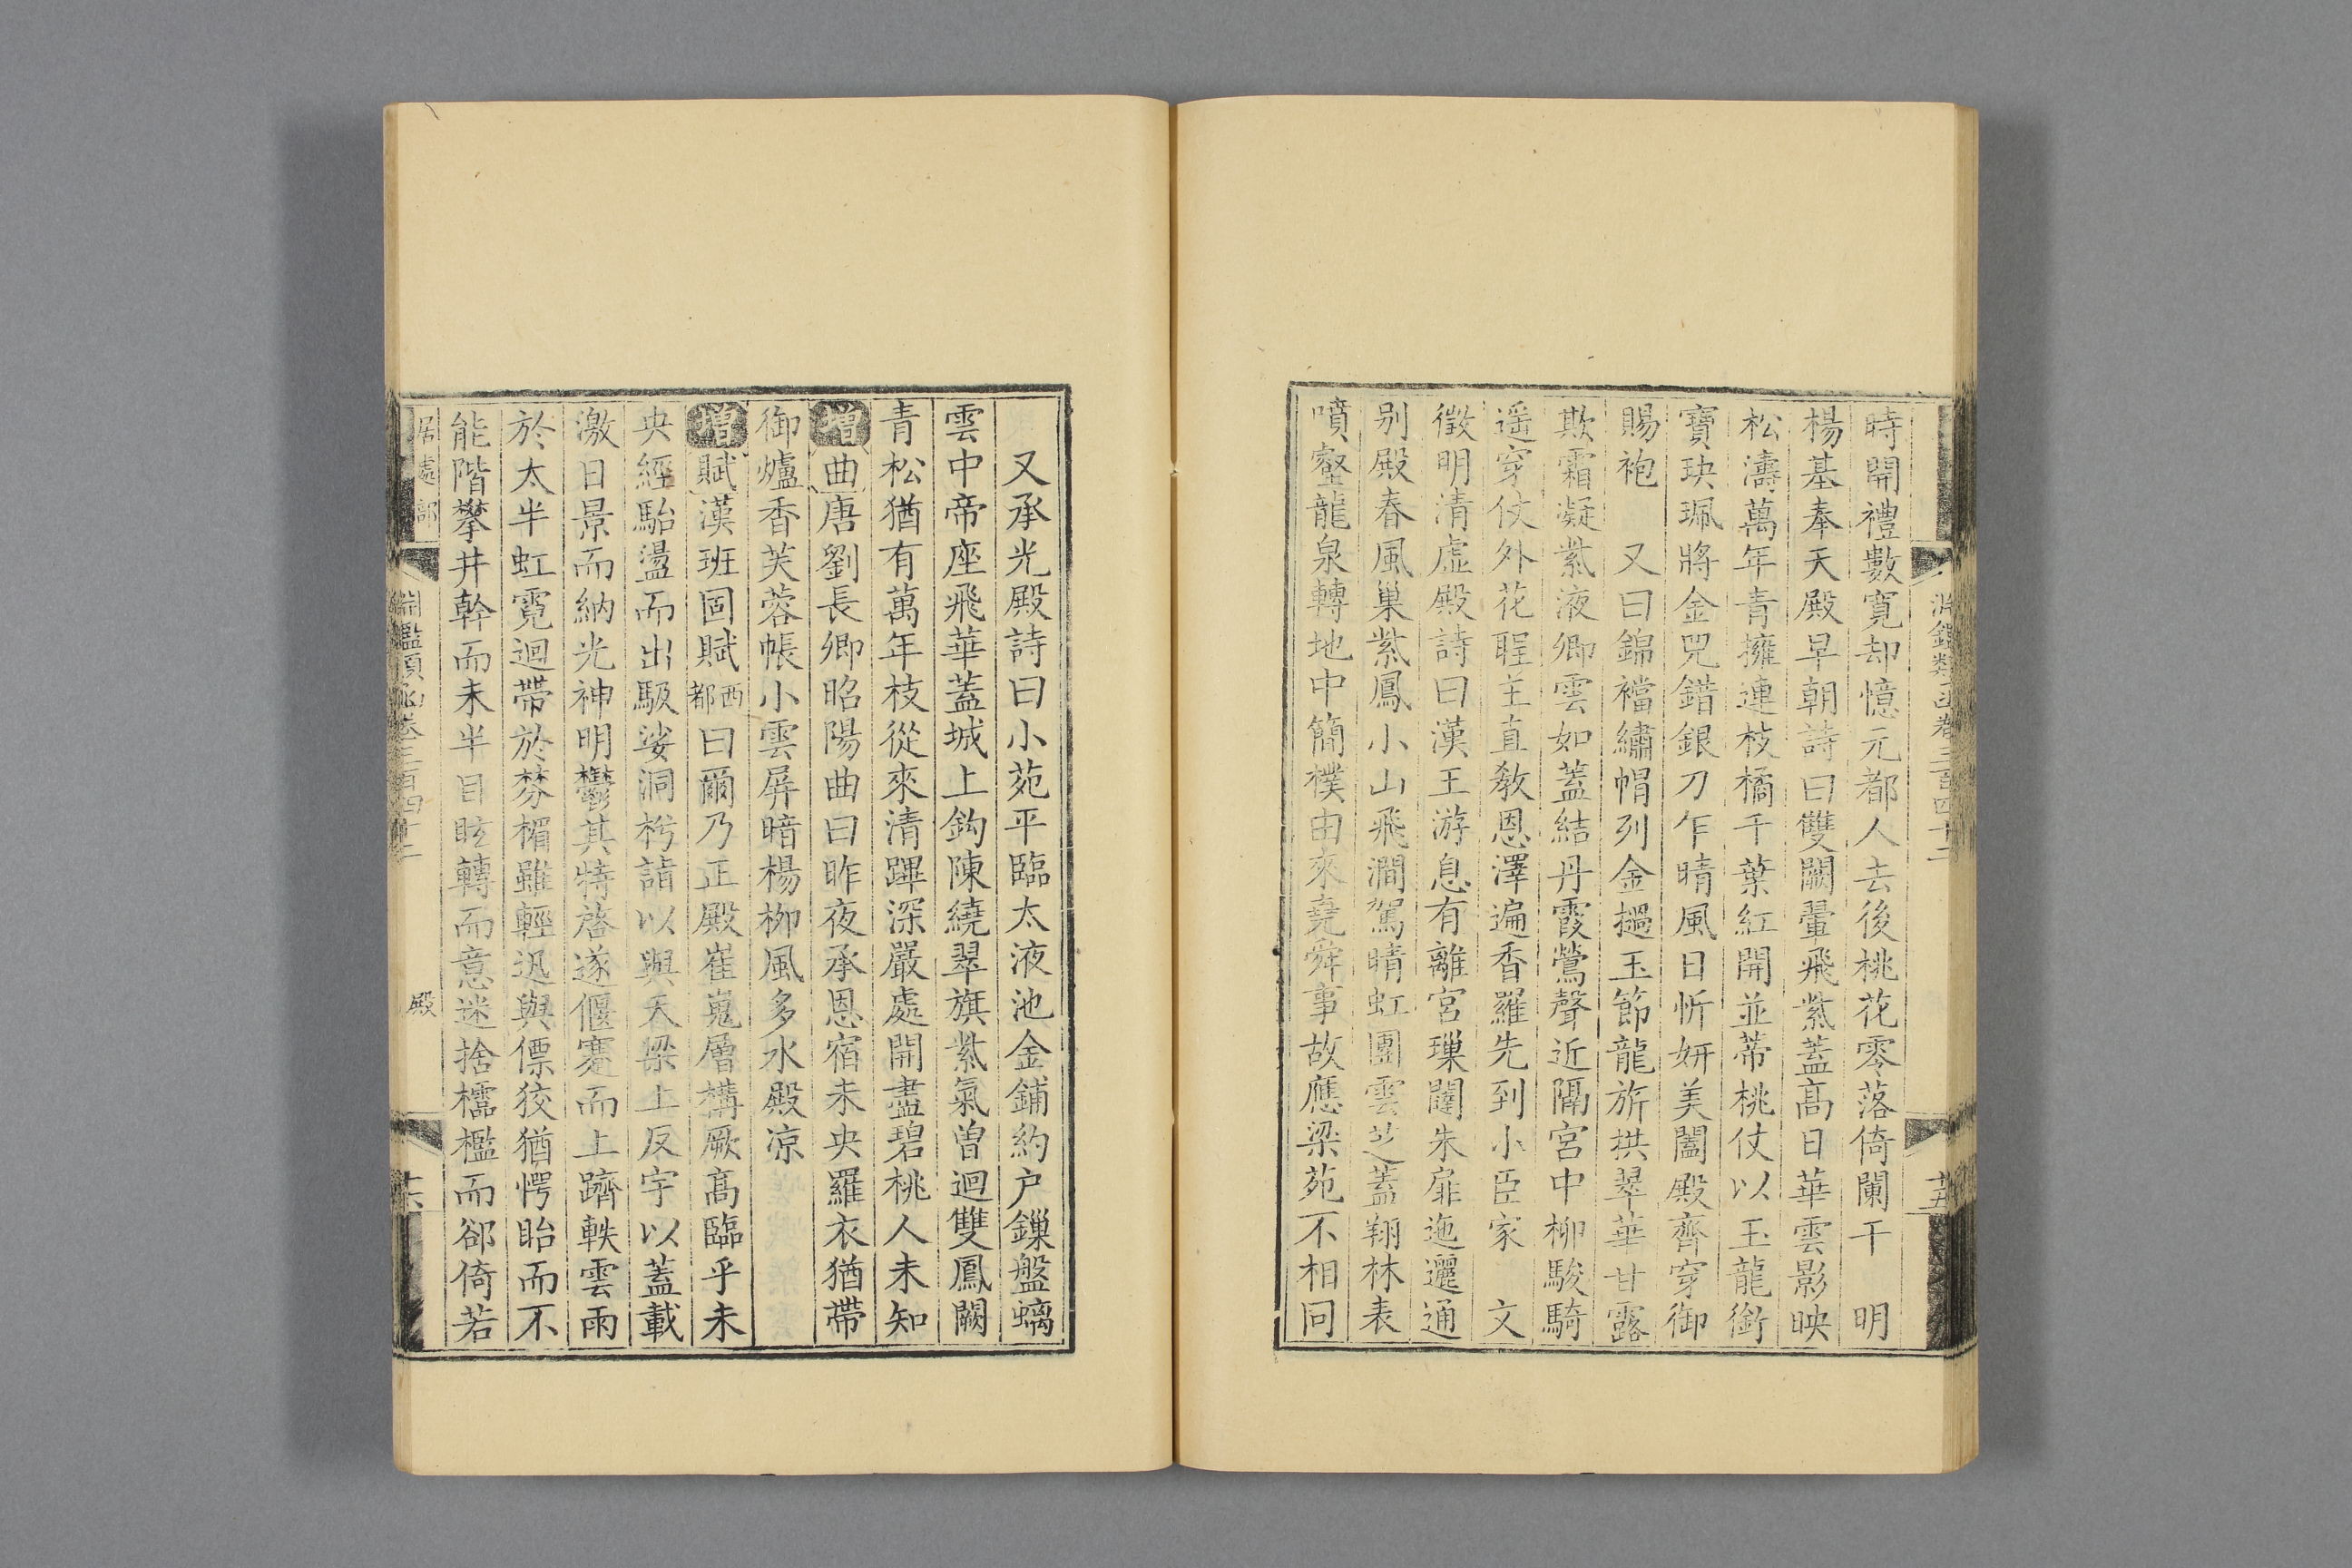 時開禮數寬却憶元都人去後桃花零落倚闌干　明
楊基奉天殿早朝詩曰雙闕翬飛紫蓋高日華雲影映
松濤萬年青擁連枝橘千葉紅開並蒂桃仗以玉龍銜
寶玦珮將金兕錯銀刀乍晴風日忻妍美闔殿齊穿御
賜袍　又曰錦襠繡帽列金撾玉節龍旂拱翠華甘露
欺霜凝紫液卿雲如蓋結丹霞鶯聲近隔宮中柳駿騎
遥穿仗外花聖主直敎恩澤遍香羅先到小臣家　文
徵明清虛殿詩曰漢王游息有離宮璅闥朱扉迤邐通
别殿春風巢紫鳳小山飛澗駕晴虹團雲芝蓋翔林表
噴壑龍泉轉地中簡樸由來堯舜事故應梁苑不相同
淵鑑類函卷三百四十二
十五
又承光殿詩曰小苑平臨太液池金鋪約户鏁盤螭
雲中帝座飛華蓋城上鈎陳繞翠旗紫氣曾迴雙鳳闕
青松猶有萬年枝從來清蹕深嚴處開盡碧桃人未知
增曲唐劉長卿昭陽曲曰昨夜承恩宿未央羅衣猶帶
御爐香芙蓉帳小雲屏暗楊柳風多水殿凉
增賦漢班固賦西都曰爾乃正殿崔嵬層構厥高臨乎未
央經駘盪而出馺娑洞枍詣以與天梁上反宇以蓋載
激日景而納光神明鬱其特啓遂偃蹇而上躋軼雲雨
於太半虹霓迴帶於棼楣雖輕迅與僄狡猶愕眙而不
能階攀井幹而未半目眩轉而意迷捨櫺檻而郤倚若
居處部
淵鑑類函卷三百四十二
殿
十六